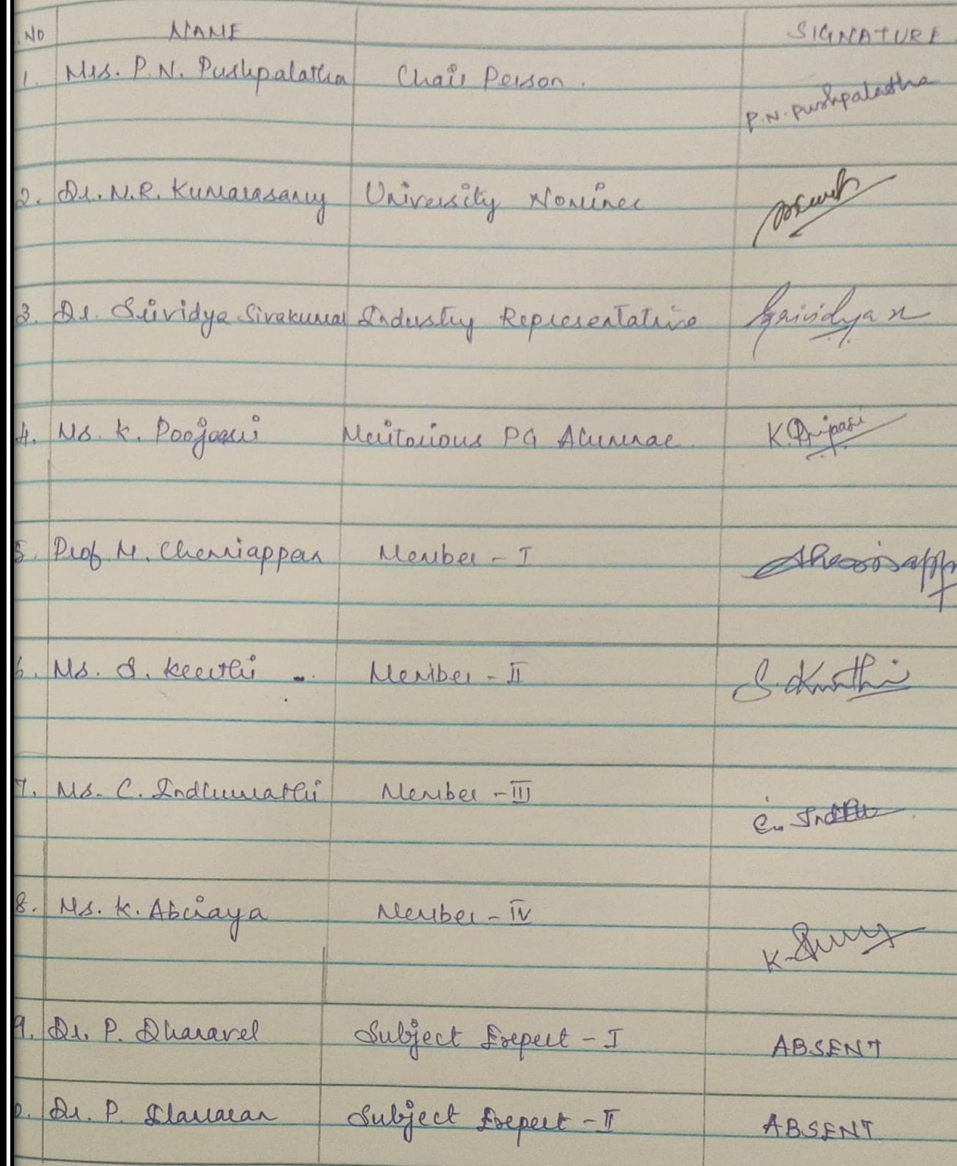 No NAME SIGNATURE
1. Mrs. P.N. Pushpalatha Chair Person. P.N. Pushpalatha
2. Dr. N.R. Kumarasamy University Nominee
3. Dr. Srividya Sivakumar Industry Representative Srividya
4. Ms. K. Poojasri Meritorious PG Alumnae K.
5. Prof M. Chenniappan Member - I
6. Ms. S. Keerthi Member - II S. Keerthi
7. Ms. C. Indhumathi Member - III C. Indhu
8. Ms. K. Abinaya Member - IV K.
9. Dr. P. Dhanavel Subject Expert - I ABSENT
Dr. P. Elanaran Subject Expert - II ABSENT